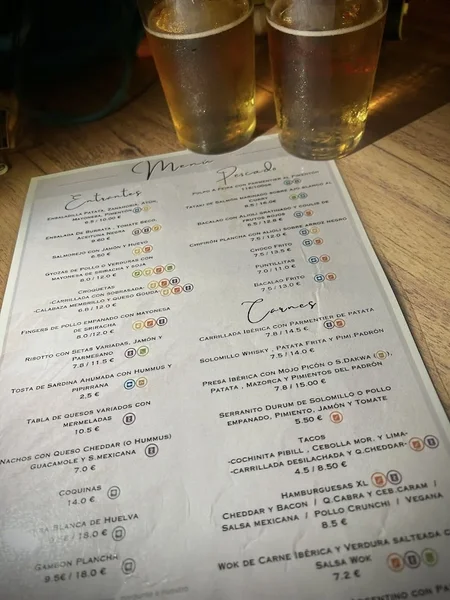 Menú
Entrantes
Ensaladilla Patata, Zanahoria, Atún,
Mayonesa, Pimentón
6.5 / 10.00 €
Ensalada de Burrata - Tomate seco,
Aceituna Negra
8.80 €
Salmorejo con Jamón y Huevo
6.50 €
Gyozas de Pollo o Verduras con
mayonesa de sriracha y soja
6.0 / 12.0 €
Croquetas
-Carrillada con Sobrasada-
-Calabaza membrillo y queso Gouda-
6.6 / 12.0 €
Fingers de pollo empanado con mayonesa
de sriracha
8.0 / 12.0 €
Risotto con Setas variadas, Jamón y
Parmesano
7.8 / 11.5 €
Tosta de Sardina Ahumada con Hummus y
Pipirrana
2,5 €
Tabla de quesos variados con
mermeladas
10.5 €
Nachos con Queso Cheddar (o Hummus)
Guacamole y S.mexicana
7.0 €
Coquinas
14.0 €
Blanca de Huelva
/ 18.0 €
Gambon Plancha
9.5€ / 18.0 €
Pescado
Pulpo a Feira con Parmentier al Pimentón
11.5/18.0€
Tataki de Salmón marinado sobre ajo blanco al
curry
8.5 / 16.0€
Bacalao con alioli gratinado y coulis de
frutos rojos
6.5 / 12.8 €
Chipirón Plancha con alioli sobre arroz negro
7.5 / 12.0 €
Choco Frito
7.5 / 13.5 €
Puntillitas
7.0 / 11.0 €
Bacalao Frito
7.5 / 13.0 €
Carnes
Carrillada Ibérica con Parmentier de patata
7.8 / 14.5 €
Solomillo Whisky , Patata Frita y Pimi.Padrón
7.5 / 14.0 €
Presa Ibérica con Mojo Picón o S.Dakwa ( ),
Patata , Mazorca y Pimientos del padrón
7.8 / 15.00 €
Serranito Durum de Solomillo o pollo
empanado, Pimiento, Jamón y Tomate
5.50 €
Tacos
-Cochinita Pibill , Cebolla mor. y lima-
-Carrillada desilachada y Q.cheddar-
4.5 / 8.50 €
Hamburguesas XL
Cheddar y Bacon / Q.Cabra y Ceb.Caram /
Salsa mexicana / Pollo Crunchi / Vegana
8.5 €
Wok de Carne Ibérica y Verdura salteada c
Salsa Wok
7.2 €